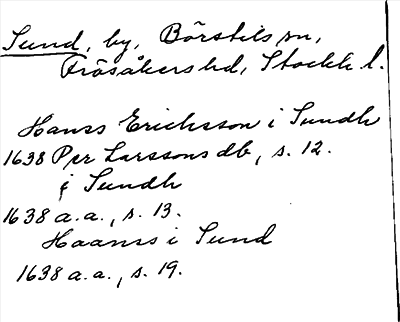 Sund, by, Börstils sn,
Frösåkers hd, Stockh l.
Hanss Ericksson i Sundh
1638 Per Larssons db, s. 12.
i Sundh
1638 a.a., s. 13.
Haanss i Sund
1638 a.a., s. 19.